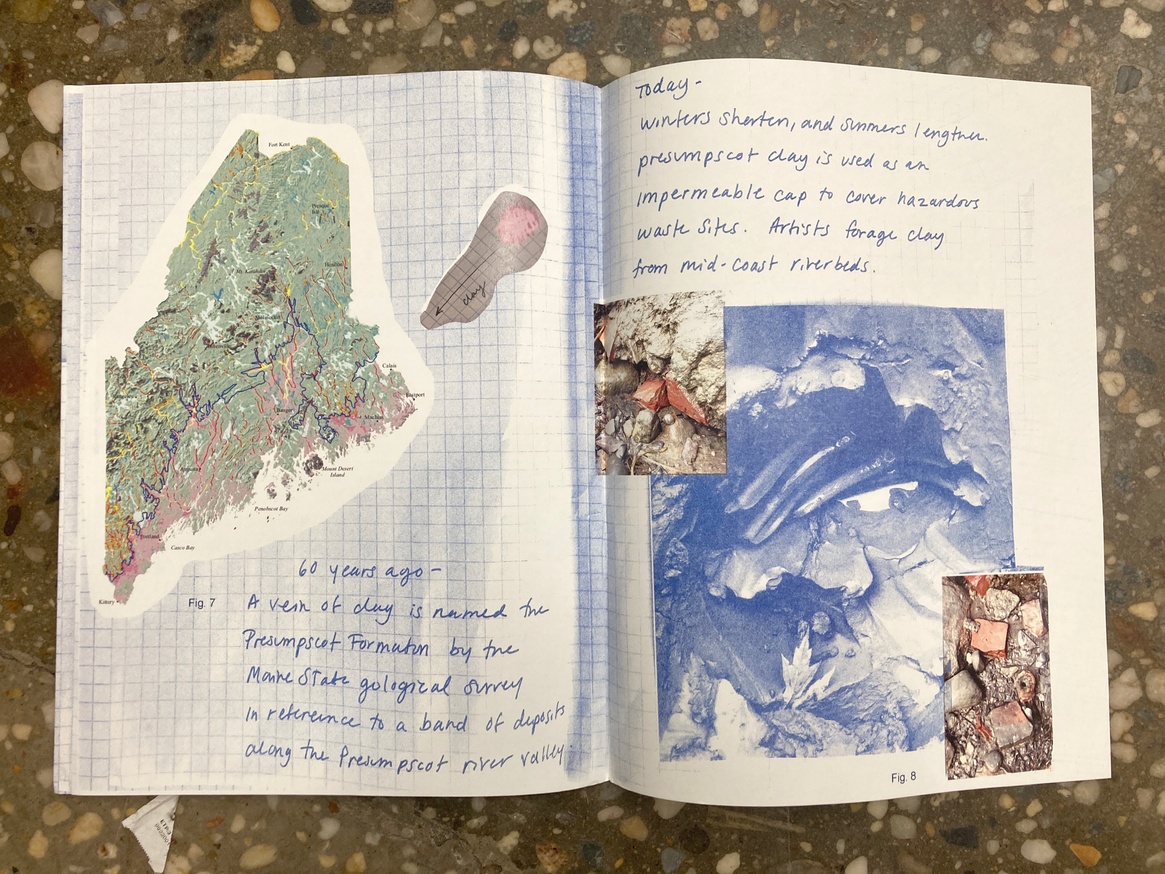 Fort Kent
Presque
Houlton
Mt. Katahdin
Calais
Eastport
Bangor
Machias
Augusta
Mount Desert
Island
Penobscot Bay
Portland
Casco Bay
Kittery
Fig. 7
clay
60 years ago -
A vein of clay is named the
Presumpscot Formation by the
Maine State gological survey
in reference to a band of deposits
along the Presumpscot river valley.
Today -
winters shorten, and summers lengthen.
presumpscot clay is used as an
impermeable cap to cover hazardous
waste sites. Artists forage clay
from mid-coast riverbeds.
Fig. 8